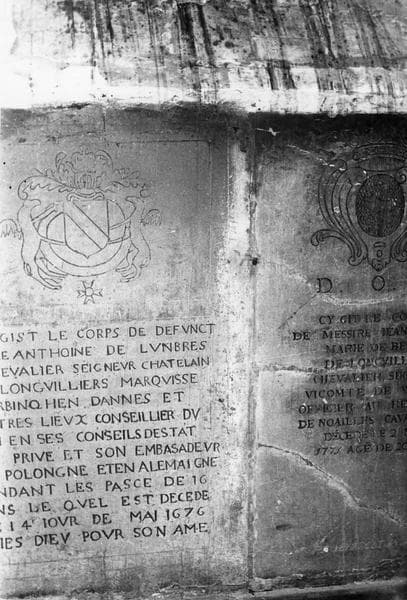 GIST LE CORPS DE DEFVNCT
E ANTHOINE DE LVNBRES
HEVALIER SEIGNEVR CHATELAIN
LONGVILLIERS MARQVISSE
RBINQHEN DANNES ET
TRES LIEVX CONSEILLIER DV
EN SES CONSEILS DESTAT
PRIVE ET SON EMBASADEVR
POLONGNE ET EN ALEMAIGNE
NDANT LES PASCE DE 16
NS LE QVEL EST DECEDE
E 14E IOVR DE MAJ 1676
IES DIEV POUR SON AME
D O
CY GIT LE CO
DE MESSIRE JEAN
MARIE DE BE
DE LONGVILL
CHEVALIER
VICOMTE DE
OFFICIER AU RE
DE NOAILLES CAVA
DECEDE
AGE DE 20